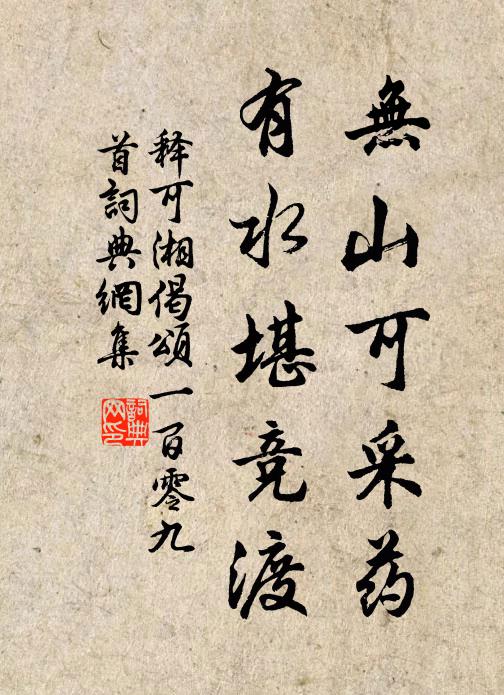 無山可采药
有水堪竞渡
释可湘偈頌一百零九
首詞典網集
詞典
网印